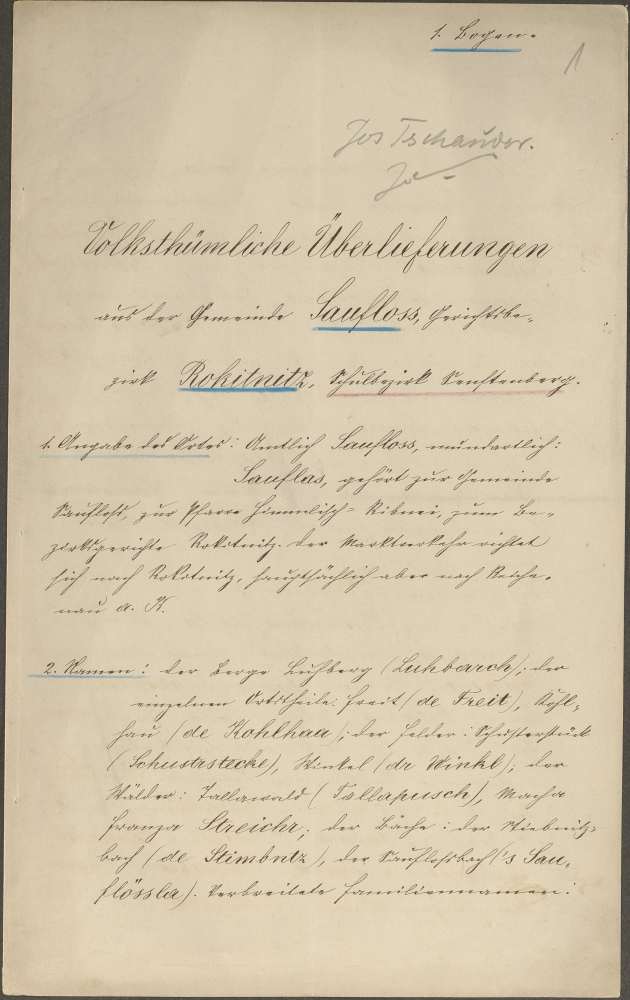 1. Bogen.
1
Jos Tschauder.
Volksthümliche Überlieferungen
aus der Gemeinde Saufloss, Gerichtsbe-
zirk Rokitnitz, Schulbezirk Senftenberg.
1. Angabe des Ortes: Amtlich Saufloss, mundartlich:
Sauflas, gehört zur Gemeinde
Saufloß, zur Pfarre Himmlisch-Ribnei, zum Be-
zirksgerichte Rokitnitz. Der Marktverkehr richtet
sich nach Rokitnitz, hauptsächlich aber nach Reiche-
nau a. K.
2. Namen: der Berge Luhberg (Luhbarch); der
einzelnen Ortstheile: Freit (de Freit), Kohl-
hau (de Kohlhaa); der Felder: Schusterstück
(Schustrstecke), Winkel (dr Winkl); der
Wälder: Tallawald (Tallapusch), Macha
Franza Streichr; der Bäche: der Stiebnitz-
bach (de Stimbntz), der Sauflossbach ('s Sau-
flössla). Verbreitete Familiennamen: